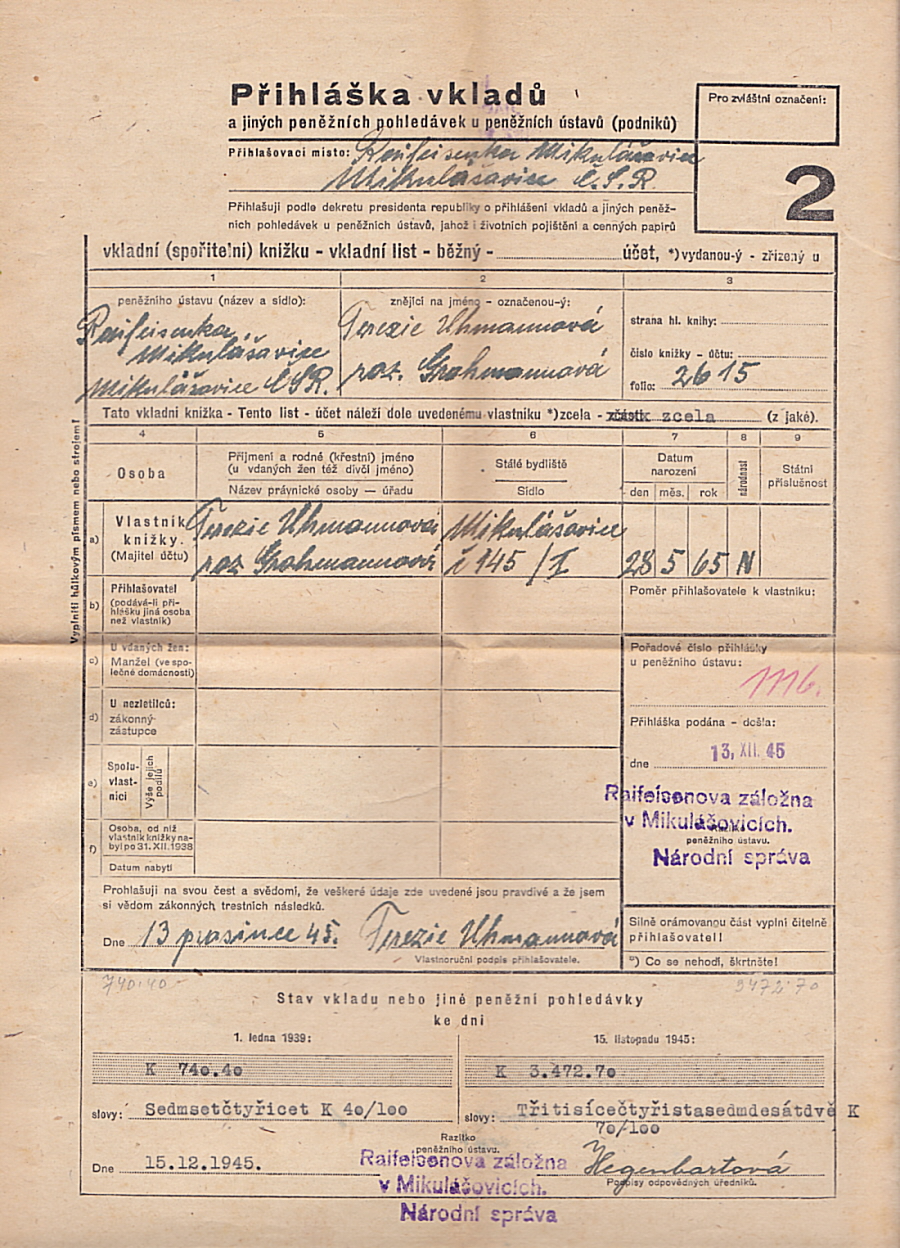 Přihláška vkladů
a jiných peněžních pohledávek u peněžních ústavů (podniků)
Pro zvláštní označení:
Přihlašovací místo: Raifeisenka Mikulášavice
Mikulášavice Č.S.R.
2
Přihlašuji podle dekretu presidenta republiky o přihlášení vkladů a jiných peněž-
ních pohledávek u peněžních ústavů, jahož i životních pojištění a cenných papírů
vkladní (spořitelní) knížku - vkladní list - běžný - účet, *) vydanou-ý - zřízený u
1 2 3
peněžního ústavu (název a sídlo):
Raifeisenka,
Mikulášavice
Mikulášavice ČSR.
znějící na jméno - označenou-ý:
Terezie Uhmannová
roz. Grohmannová
strana hl. knihy:
číslo knížky - účtu:
folio: 2615
Tato vkladní knížka - Tento list - účet náleží dole uvedenému vlastníku *) zcela - zčásti zcela (z jaké).
4 5 6 7 8 9
Osoba
Příjmení a rodné (křestní) jméno
(u vdaných žen též dívčí jméno)
Název právnické osoby — úřadu
Stálé bydliště
Sídlo
Datum
narození
den měs. rok
národnost
Státní
příslušnost
a) Vlastník
knížky.
(Majitel účtu)
Terezie Uhmannová
roz Grohmannová
Mikulášavice
č 145 / I
28 5 65 N
b) Přihlašovatel
(podává-li při-
hlášku jiná osoba
než vlastník)
Poměr přihlašovatele k vlastníku:
c) U vdaných žen:
Manžel (ve spo-
lečné domácnosti)
d) U nezletilců:
zákonný
zástupce
e) Spolu-
vlast-
níci
Výše jejich
podílů
f) Osoba, od níž
vlastník knížky na-
byl po 31. XII. 1938
Datum nabytí
Vyplniti hůlkovým písmem nebo strojem!
Pořadové číslo přihlášky
u peněžního ústavu:
1116.
Přihláška podána - došla:
dne 13. XII. 45
Raifeisenova záložna
v Mikulášovicích.
peněžního ústavu.
Národní správa
Prohlašuji na svou čest a svědomí, že veškeré údaje zde uvedené jsou pravdivé a že jsem
si vědom zákonných trestních následků.
Dne 13 prasince 45. Terezie Uhmannová
Vlastnoruční podpis přihlašovatele.
Silně orámovanou část vyplní čitelně
přihlašovatel!
*) Co se nehodí, škrtněte!
740.40.- 3472.70
Stav vkladu nebo jiné peněžní pohledávky
ke dni
1. ledna 1939:
K 740.40
slovy: Sedmsetčtyřicet K 40/100
15. listopadu 1945:
K 3.472.70
slovy: Třitisícečtyřistasedmdesátdvě K
70/100
Dne 15.12.1945.
Razítko
peněžního ústavu.
Raifeisenova záložna
v Mikulášovicích.
Národní správa
Hegenbartová
Podpisy odpovědných úředníků.